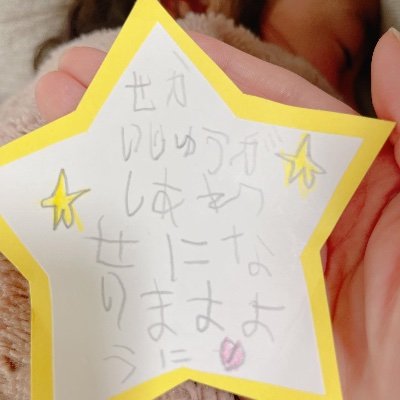 せか
いじゅうが
しあわ
せにな
りますよ
うに